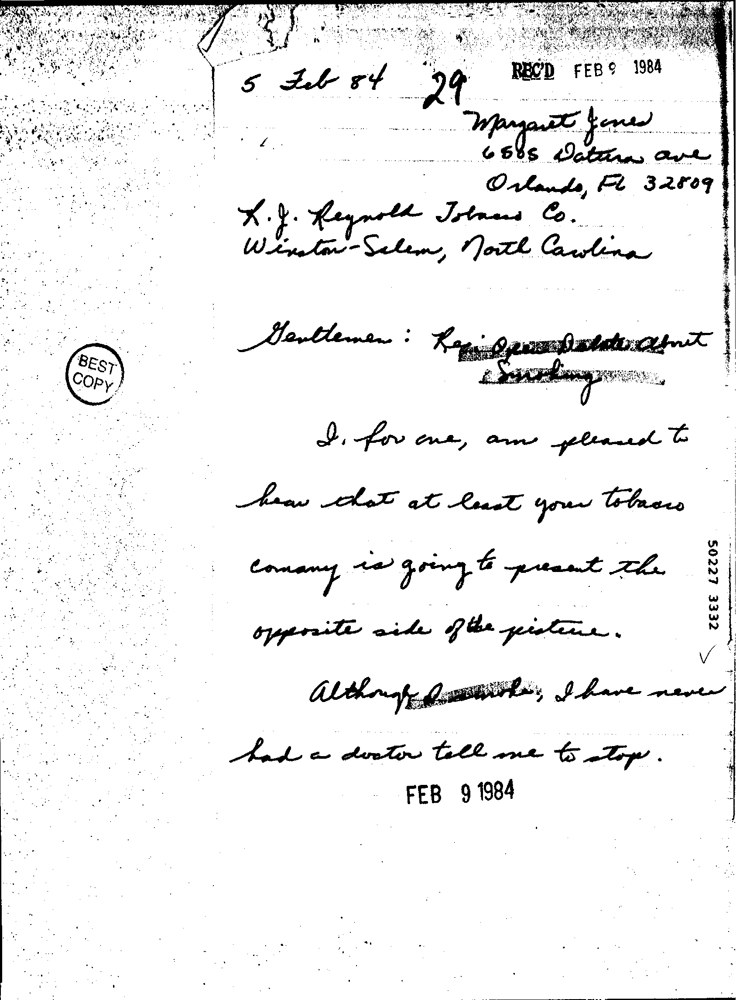 5 Feb 84 29 REC'D FEB 9 1984
Margaret Jones
Datura Ave
Orlando, FL 32809
R.J. Reynold Tobacco Co.
Winston-Salem, North Carolina
Gentlemen: Re: Open Debate About
Smoking
BEST
COPY
I, for one, am pleased to
hear that at least your tobacco
comany is going to present the
opposite side of the picture.
50227 3332
Although I smoke, I have never
had a doctor tell me to stop.
FEB 9 1984